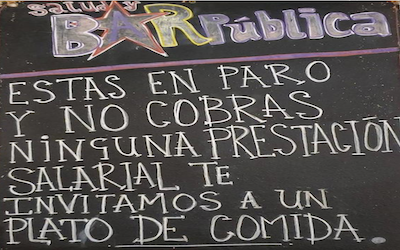 Salud y
BAR Pública
ESTAS EN PARO
Y NO COBRAS
NINGUNA PRESTACIÓN
SALARIAL TE
INVITAMOS A UN
PLATO DE COMIDA.